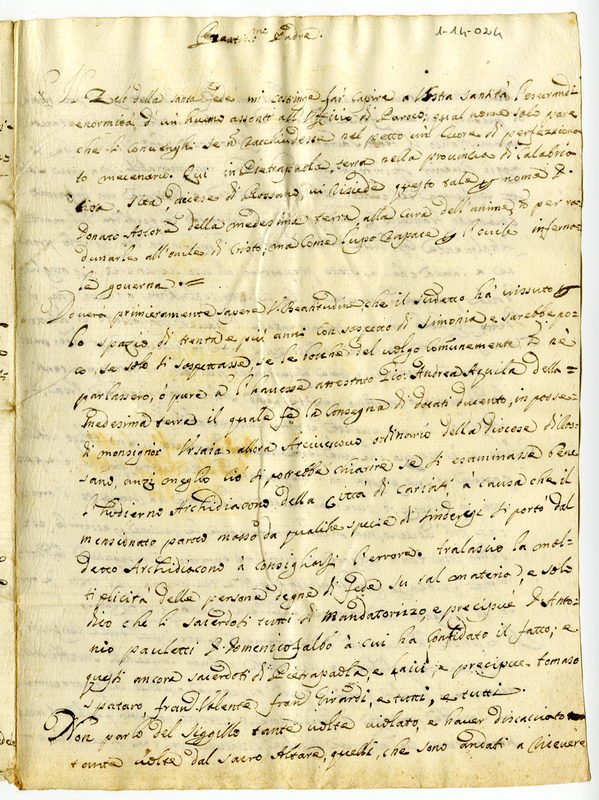 Beatiss.mo Padre.
1-14-024
Il Zelo della santa fede mi costringe far capire a V'ostra santità l'esecrandi
enormità d'un huomo assonti all'Officio di Paroco; qual nome solo pare
che si convenghi se n. racchiudesse nel petto un Cuore di perfezziona
to mecenario. Qui in Pietrapaola, terra nella provincia di Calabria
Citra, diocese di Rossano, vi risiede questo tale nome D.
Donato Astore della medesima terra alla Cura dell'anime, per ra
dunarle all'ovile di Cristo; ma Come lupo Rapace l'ovile inferna
le governa.
Dovera primieramente sapere V. Beatitudine, che il sudetto hà vissuto
lo spazio di trenta e più anni con sospetto di simonia e sarebbe po
co, se solo si sospettasse, se le bocche del volgo Comunemente n. nè
parlassero, ò pure n. l'havesse attestato Gio: Andrea Aquila della
medesima terra il quale fè la Consegna di docati ducento, in posse
di monsignor Ursaia allora Arcivescovo ordinario della diocese di Ros
sano, anzi meglio ciò si potrebbe chiarire se si esaminasse bene
l'hodierno Archidiacono della Città di Cariati, à causa che il
mensionato paroco mosso da qualche specie di sinderesi si portò dal
detto Archidiacono à consigliarsi l'errore. tralascio la mol
tiplicità delle persone degne di fede su tal materia, e solo
dico che li sacerdoti tutti di Mandatorizzo, e precipuè D. Anto
nio pauletti D. Domenico falbo à cui ha Confidato il fatto; e
questi ancora sacerdoti di Pietrapaola, e laici, e precipue tomaso
spataro, fran. Valente fran. Girardi, e tutti, e tutti.
Non parlo del siggillo tante volte violato, e haver discacciato
tante volte dal sacro Altare, quelli, che sono andati a ricevere